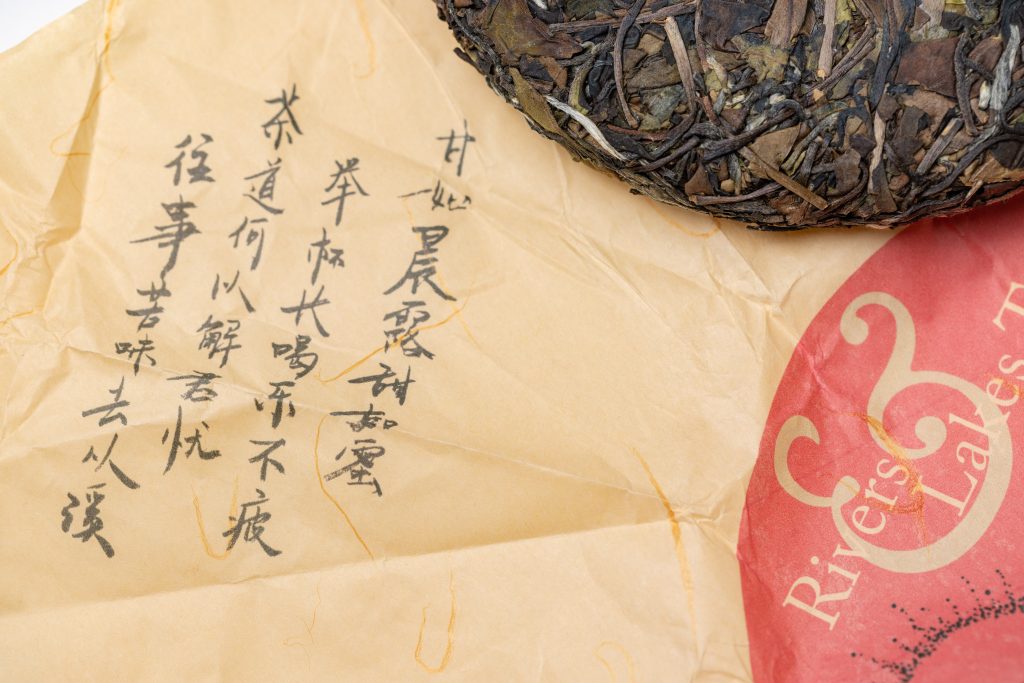 甘如晨露甜如蜜
举杯共喝乐不疲
茶道何以解君忧
往事苦味去从溪
Rivers &
Lakes